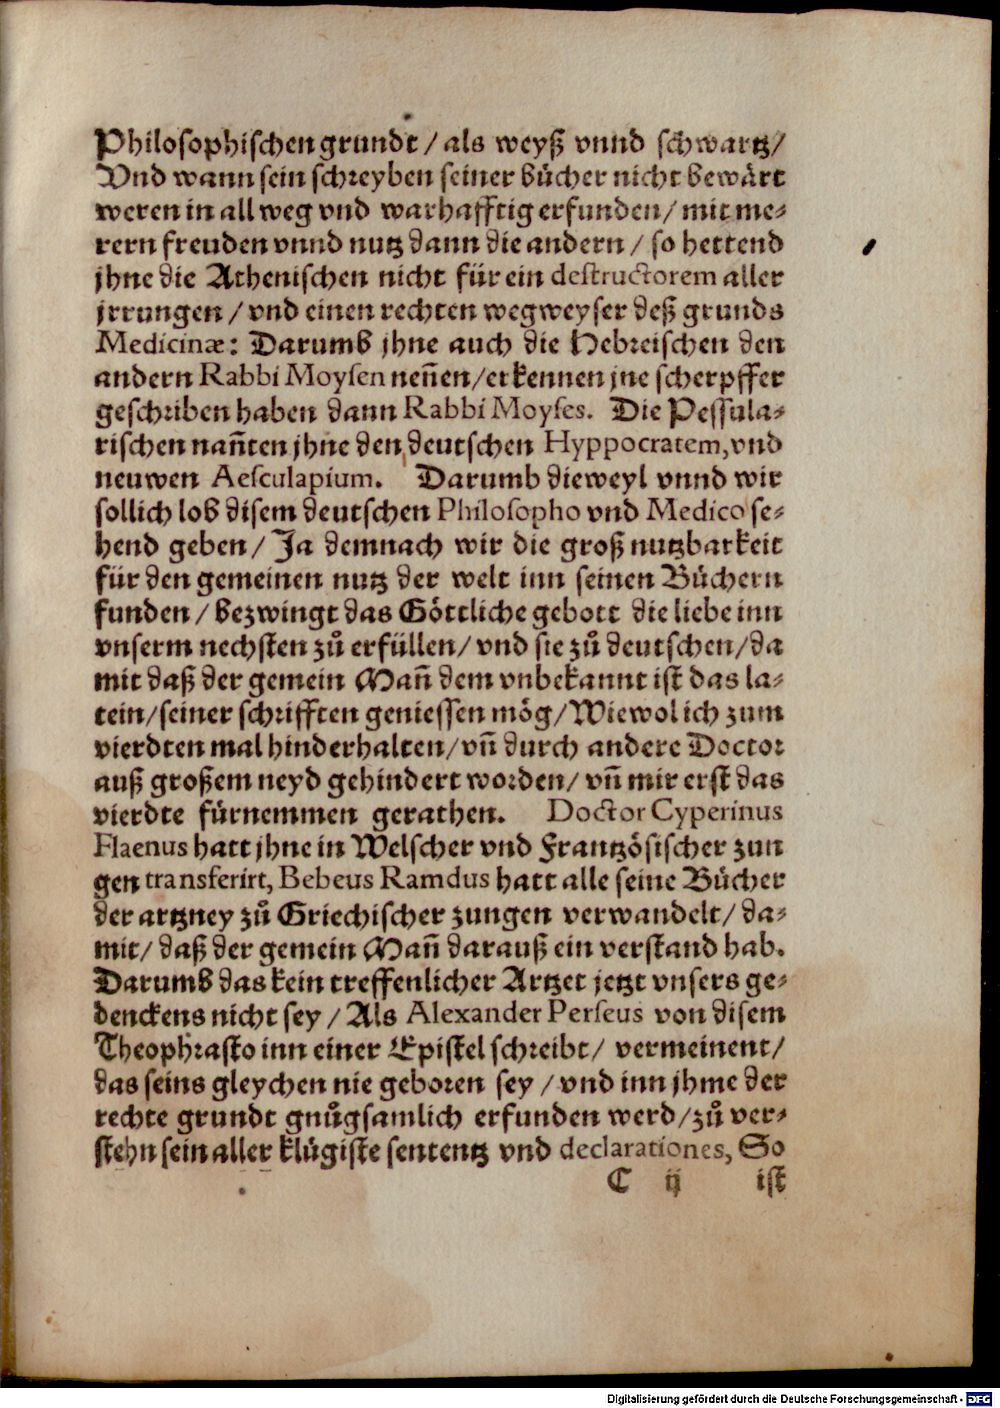 Philosophischen grundt / als weyß vnnd schwartz/
Vnd wann sein schreyben seiner bücher nicht bewärt
weren in all weg vnd warhafftig erfunden/ mit me-
rern freuden vnnd nutz dann die andern / so hettend
jhne die Athenischen nicht für ein destructorem aller
jrrungen / vnd einen rechten wegweyser deß grunds
Medicinæ: Darumb jhne auch die Hebreischen den
andern Rabbi Moysen neñen/erkennen jne scherpffer
geschriben haben dann Rabbi Moyses. Die Pessula-
rischen nañten jhne den deutschen Hyppocratem, vnd
neuwen Aesculapium. Darumb dieweyl vnnd wir
sollich lob disem deutschen Philosopho vnd Medico se-
hend geben/ Ja demnach wir die groß nutzbarkeit
für den gemeinen nutz der welt inn seinen Büchern
funden / bezwingt das Göttliche gebott die liebe inn
vnserm nechsten zů erfüllen/ vnd sie zů deutschen/da
mit daß der gemein Mañ dem vnbekannt ist das la-
tein/seiner schrifften geniessen mög/Wiewol ich zum
vierdten mal hinderhalten/vñ durch andere Doctor
auß großem neyd gehindert worden/ vñ mir erst das
vierdte fürnemmen gerathen. Doctor Cyperinus
Flaenus hatt jhne in Welscher vnd Frantzösischer zun
gen transferirt, Bebeus Ramdus hatt alle seine Bücher
der artzney zů Griechischer zungen verwandelt/ da-
mit/ daß der gemein Mañ darauß ein verstand hab.
Darumb das kein treffenlicher Artzet jetzt vnsers ge-
denckens nicht sey / Als Alexander Perseus von disem
Theophrasto inn einer Epistel schreibt/ vermeinent/
das seins gleychen nie geboren sey / vnd inn jhme der
rechte grundt gnůgsamlich erfunden werd/zů ver-
stehn sein aller klügiste sententz vnd declarationes, So
C ij ist
Digitalisierung gefördert durch die Deutsche Forschungsgemeinschaft - DFG